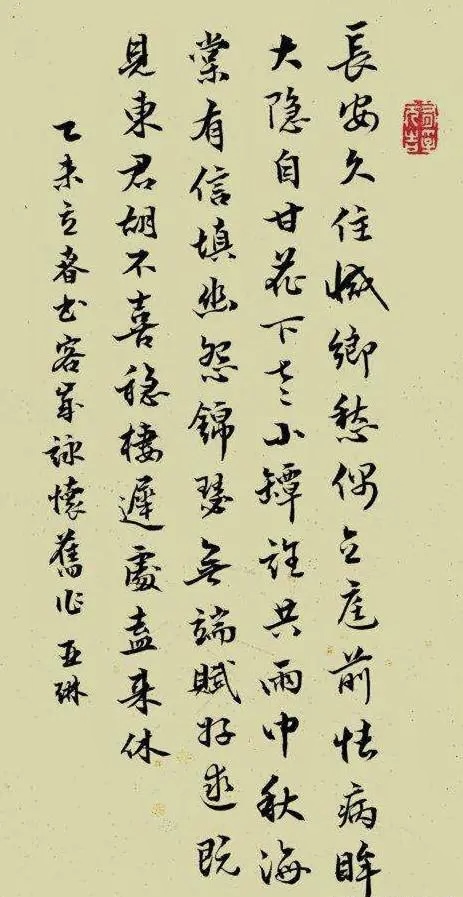 長安久住減鄉愁偶立庭前怯病眸
大隱自甘花下老小罈誰共雨中秋海
棠有信填幽怨錦瑟無端賦好逑既
見東君胡不喜穩棲遲處盍來休
乙未立春書客歲詠懷舊作 亞琳